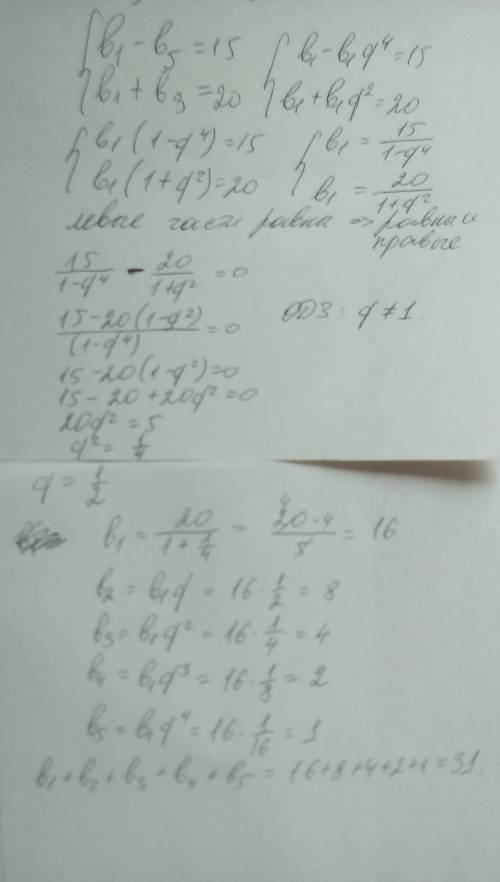 { b₁ - b₅ = 15   { b₁ - b₁q⁴ = 15
{ b₁ + b₃ = 20   { b₁ + b₁q² = 20
{ b₁(1-q⁴) = 15   { b₁ = 15/(1-q⁴)
{ b₁(1+q²) = 20   { b₁ = 20/(1+q²)
левые части равны => равны и
правые
15/(1-q⁴) - 20/(1+q²) = 0
(15-20(1-q²))/(1-q⁴) = 0   ОДЗ: q ≠ 1.
15-20(1-q²)=0
15-20+20q²=0
20q² = 5
q² = 1/4
q = 1/2
b₁ = 20/(1+1/4) = (20·4)/5 = 16
b₂ = b₁q = 16·1/2 = 8
b₃ = b₁q² = 16·1/4 = 4
b₄ = b₁q³ = 16·1/8 = 2
b₅ = b₁q⁴ = 16·1/16 = 1.
b₁+b₂+b₃+b₄+b₅ = 16+8+4+2+1=31.